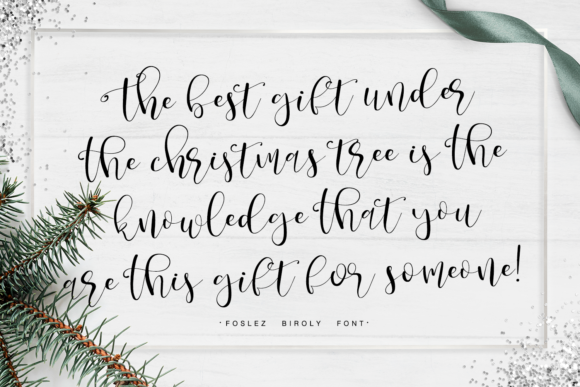 the best gift under
the christmas tree is the
knowledge that you
are this gift for someone!
·FOSLEZ BIROLY FONT·